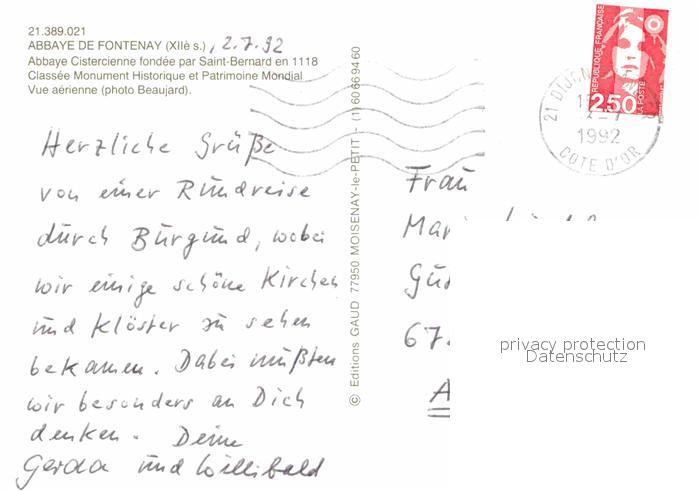 21.389.021
ABBAYE DE FONTENAY (XIIè s.), 2.7.92
Abbaye Cistercienne fondée par Saint-Bernard en 1118
Classée Monument Historique et Patrimoine Mondial
Vue aérienne (photo Beaujard).
Herzliche Grüße
von einer Rundreise
durch Burgund, wobei
wir einige schöne Kirchen
und Klöster zu sehen
bekamen. Dabei mußten
wir besonders an Dich
denken. Deine
Gerda und Willibald
© Editions GAUD 77950 MOISENAY-le-PETIT - (1) 60 66 94 60
RÉPUBLIQUE FRANÇAISE
2,50
LA POSTE
21 DIJON
1992
COTE D'OR
Frau
67.
privacy protection
Datenschutz